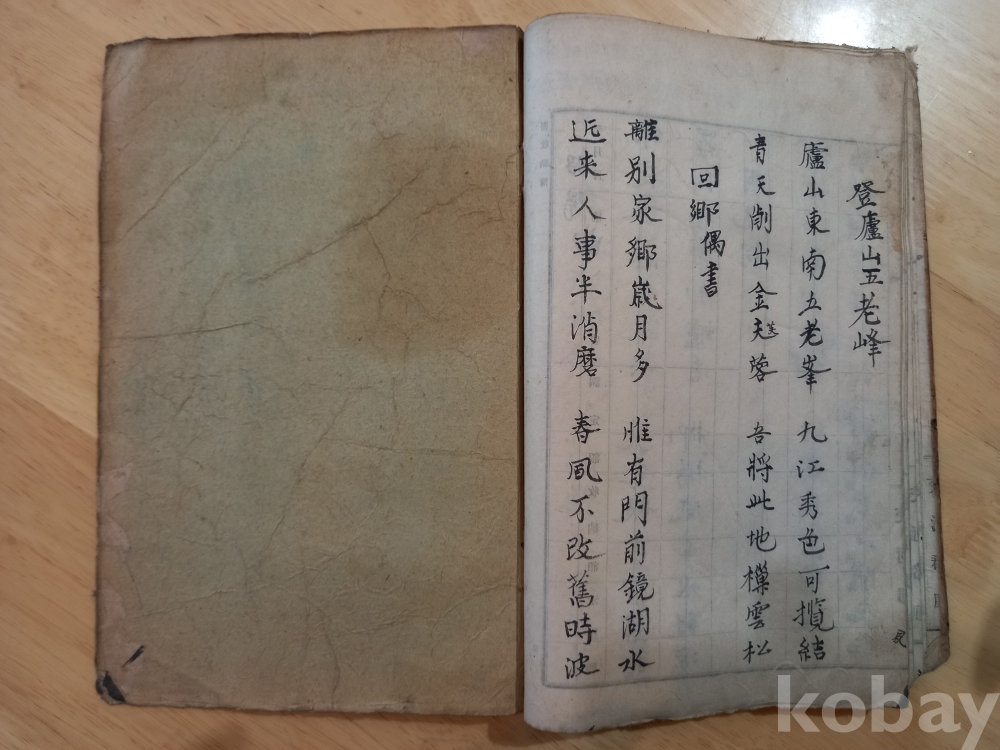 登廬山五老峰
廬山東南五老峯 九江秀色可攬結
青天削出金芙蓉 吾將此地樔雲松
回鄉偶書
離別家鄉歲月多 惟有門前鏡湖水
近来人事半消磨 春風不改舊時波
kobay